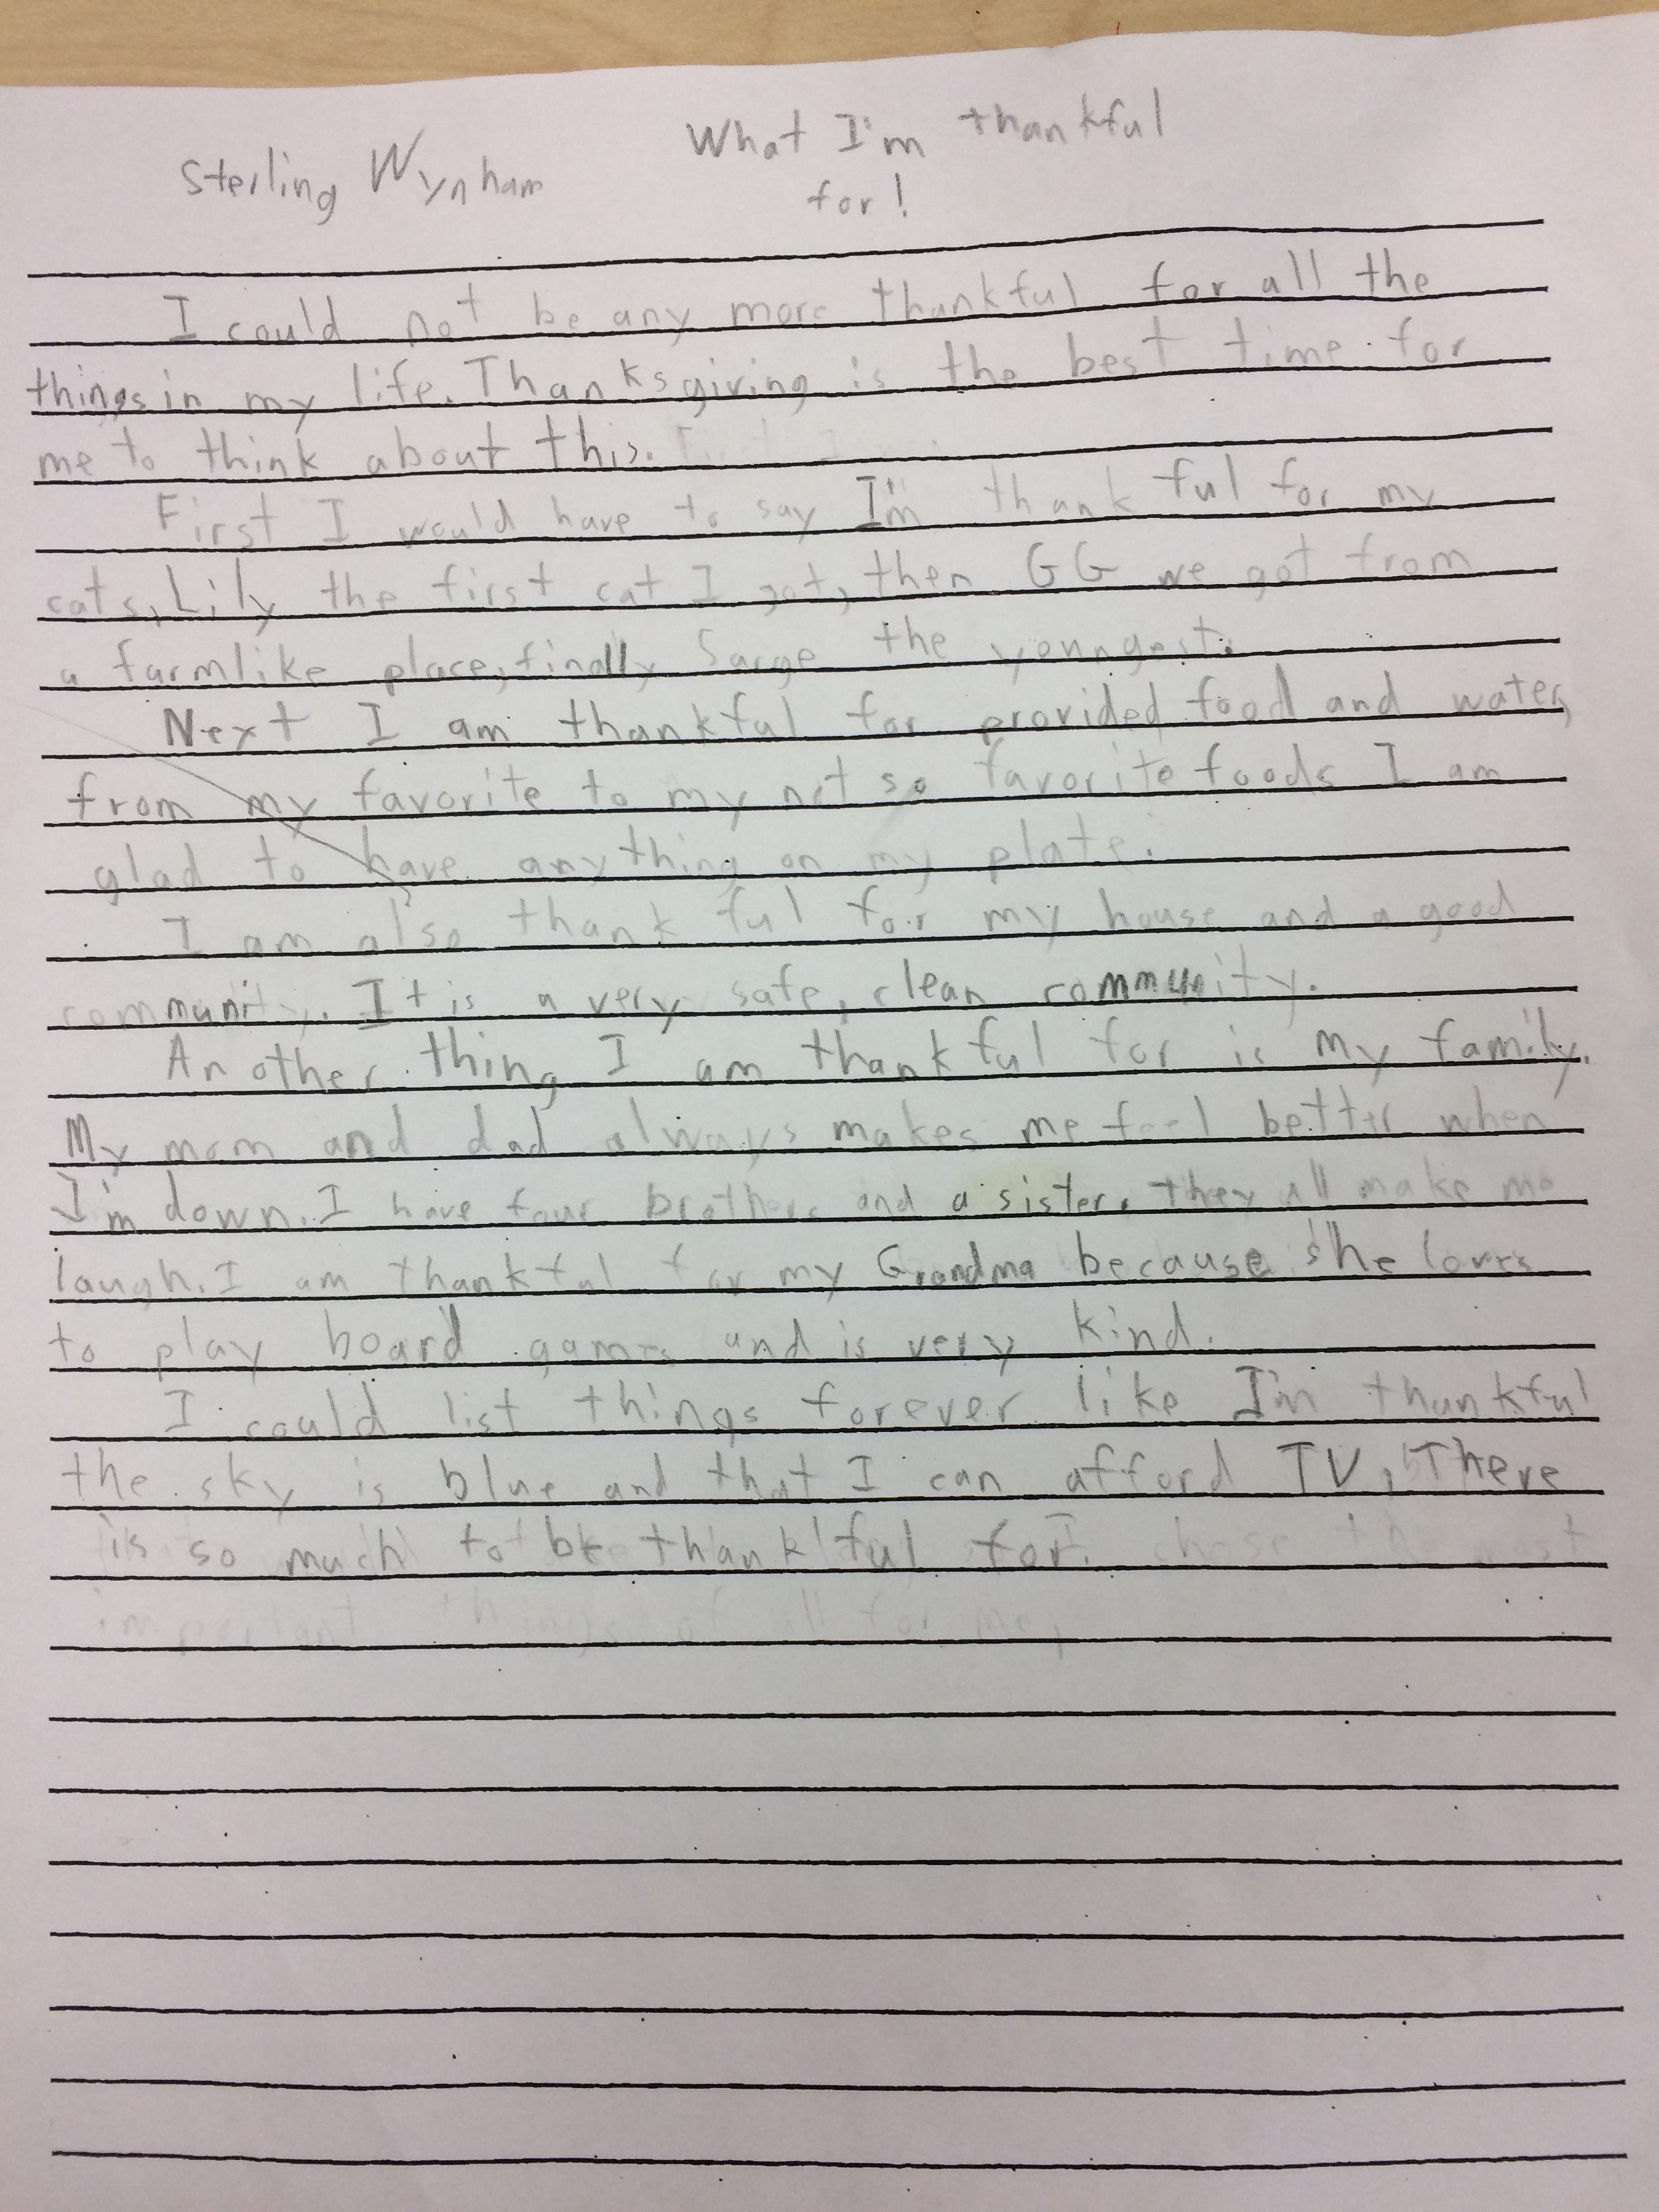 What I'm thankful
Sterling Wynham
for!
I could not be any more thankful for all the
things in my life. Thanksgiving is the best time for
me to think about this.
First I would have to say I'm thankful for my
cats, Lily the first cat I got, then GG we got from
a farmlike place, finally Sarge the youngest.
Next I am thankful for provided food and water,
from my favorite to my not so favorite foods I am
glad to have anything on my plate.
I am also thankful for my house and a good
community. It is a very safe, clean community.
Another thing I am thankful for is my family.
My mom and dad always makes me feel better when
I'm down. I have four brothers and a sister, they all make me
laugh. I am thankful for my Grandma because she loves
to play board games and is very kind.
I could list things forever like I'm thankful
the sky is blue and that I can afford TV. There
is so much to be thankful for.
important things of all for me,